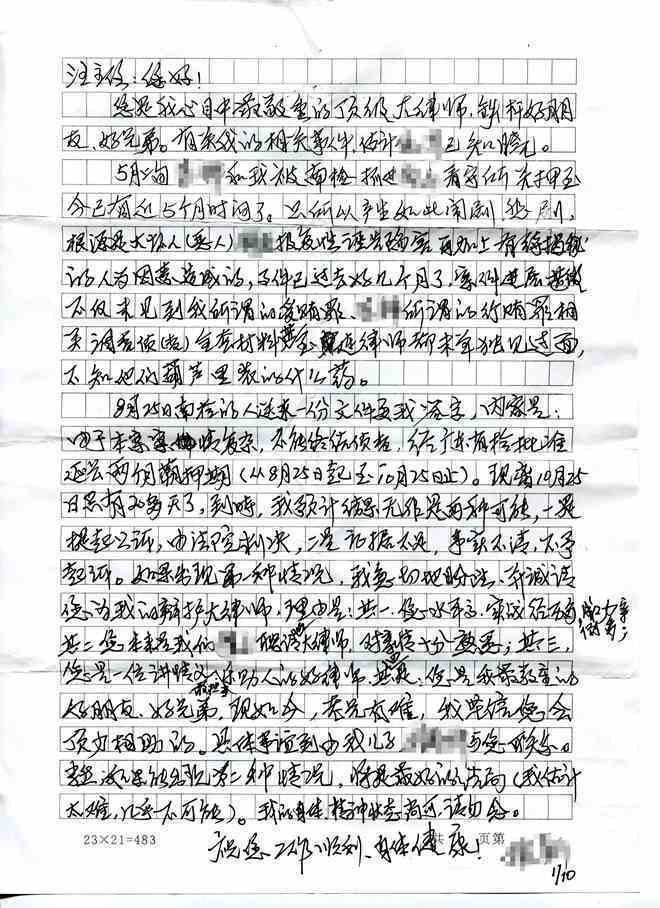 汪主任：您好！
您是我心目中最敬重的顶级大律师，铁杆好朋
友、好兄弟。有关我的相关事件，估计已知晓了。
5月旬和我被南检一抓进看守所关押至
今已有近5个月时间了。之所以产生如此闹剧悲剧，
根源是大坏人（恶人）报复性诬告陷害再加上有
的人为因素造成的，案件已过去好几个月了，案件进展
不仅未见到我所谓的受贿罪、所谓的行贿罪相
关调查该（卷）全套材料甚至连律师都未单独见过面，
不知他们葫芦里装的什么药。
8月25日南检的人送来一份文件要我签字，内容是：
由于本案案情复杂，不能终结侦查，经广东省检批准
延长两个月羁押期（从8月25日起至10月25日止）。现离10月25
日只有20多天了，到时，我预计结果无非是两种可能，一是
提起公诉，由法院判决，二是证据不足，事实不清，不予
起诉。如果出现第一种情况，我急切地盼望、并诚请
您为我的辩护大律师，理由是：其一、您水平高，实战经历
其二、您本来是我们聘请大律师，对事情十分熟悉；其三、
您是一位讲情义乐助人的好律师，其四：您是我最敬重的
好朋友、好兄弟，现如今，苦兄有难，我坚信您会
顶力相助的。具体事宜到由我儿子与您联系。
如果能出现第二种情况，将是最好的结局（我估计
太难，几乎不可能）。我的身体、精神状态尚可，请勿念。
祝您工作顺利、身体健康！
23×21=483 共 页第
1/10